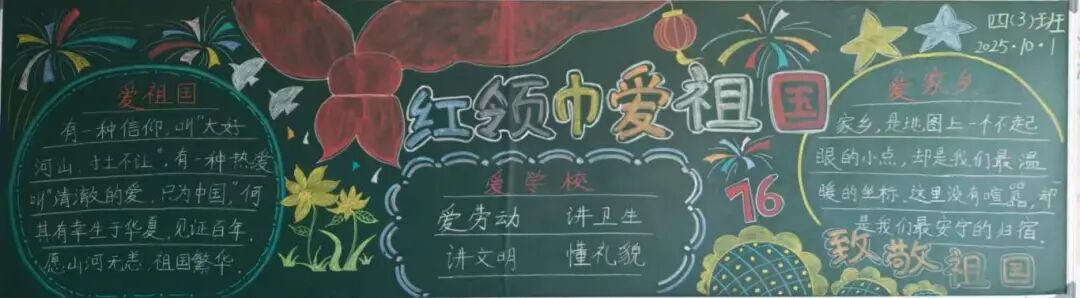 四(3)班
2025·10·1
红领巾爱祖国
爱祖国
有一种信仰,叫"大好
河山,寸土不让",有一种热爱
叫"清澈的爱,只为中国",何
其有幸生于华夏,见证百年.
愿山河无恙,祖国繁华.
爱学校
爱劳动 讲卫生
讲文明 懂礼貌
76
爱家乡
家乡,是地图上一个不起
眼的小点,却是我们最温
暖的坐标.这里没有喧嚣,却
是我们最安宁的归宿.
致敬祖国